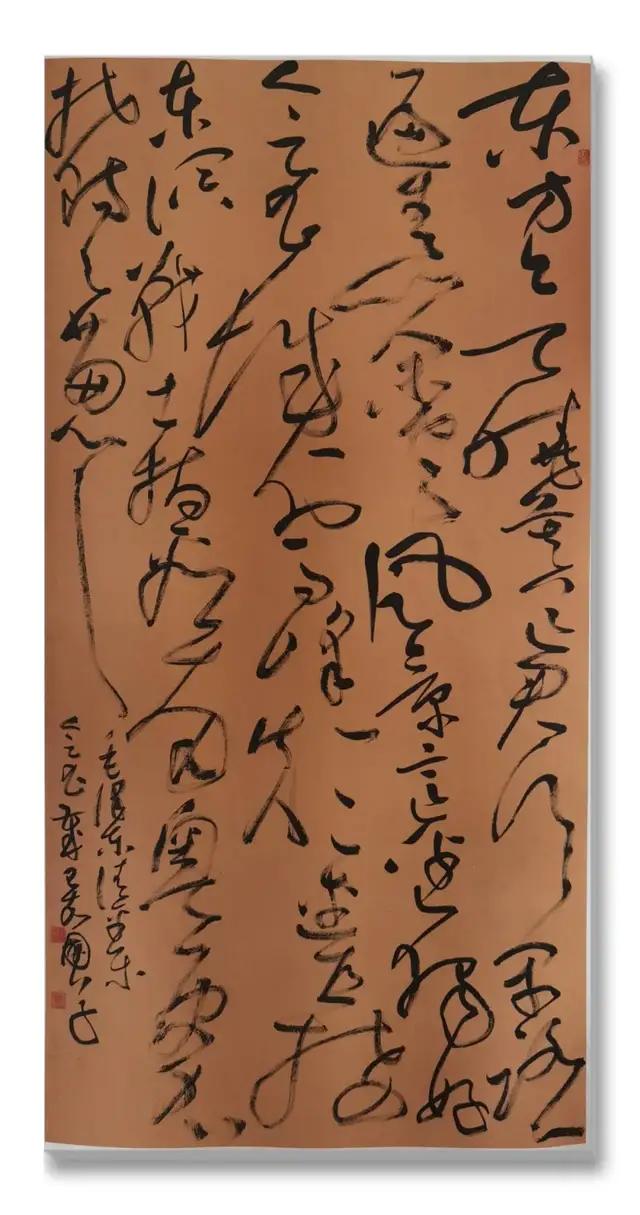 东方欲晓莫道君行早踏
遍青山人未老风景这边独好
会昌城外高峰颠连直接
东溟战士指看南粤更加
郁郁葱葱
毛泽东清平乐
会昌